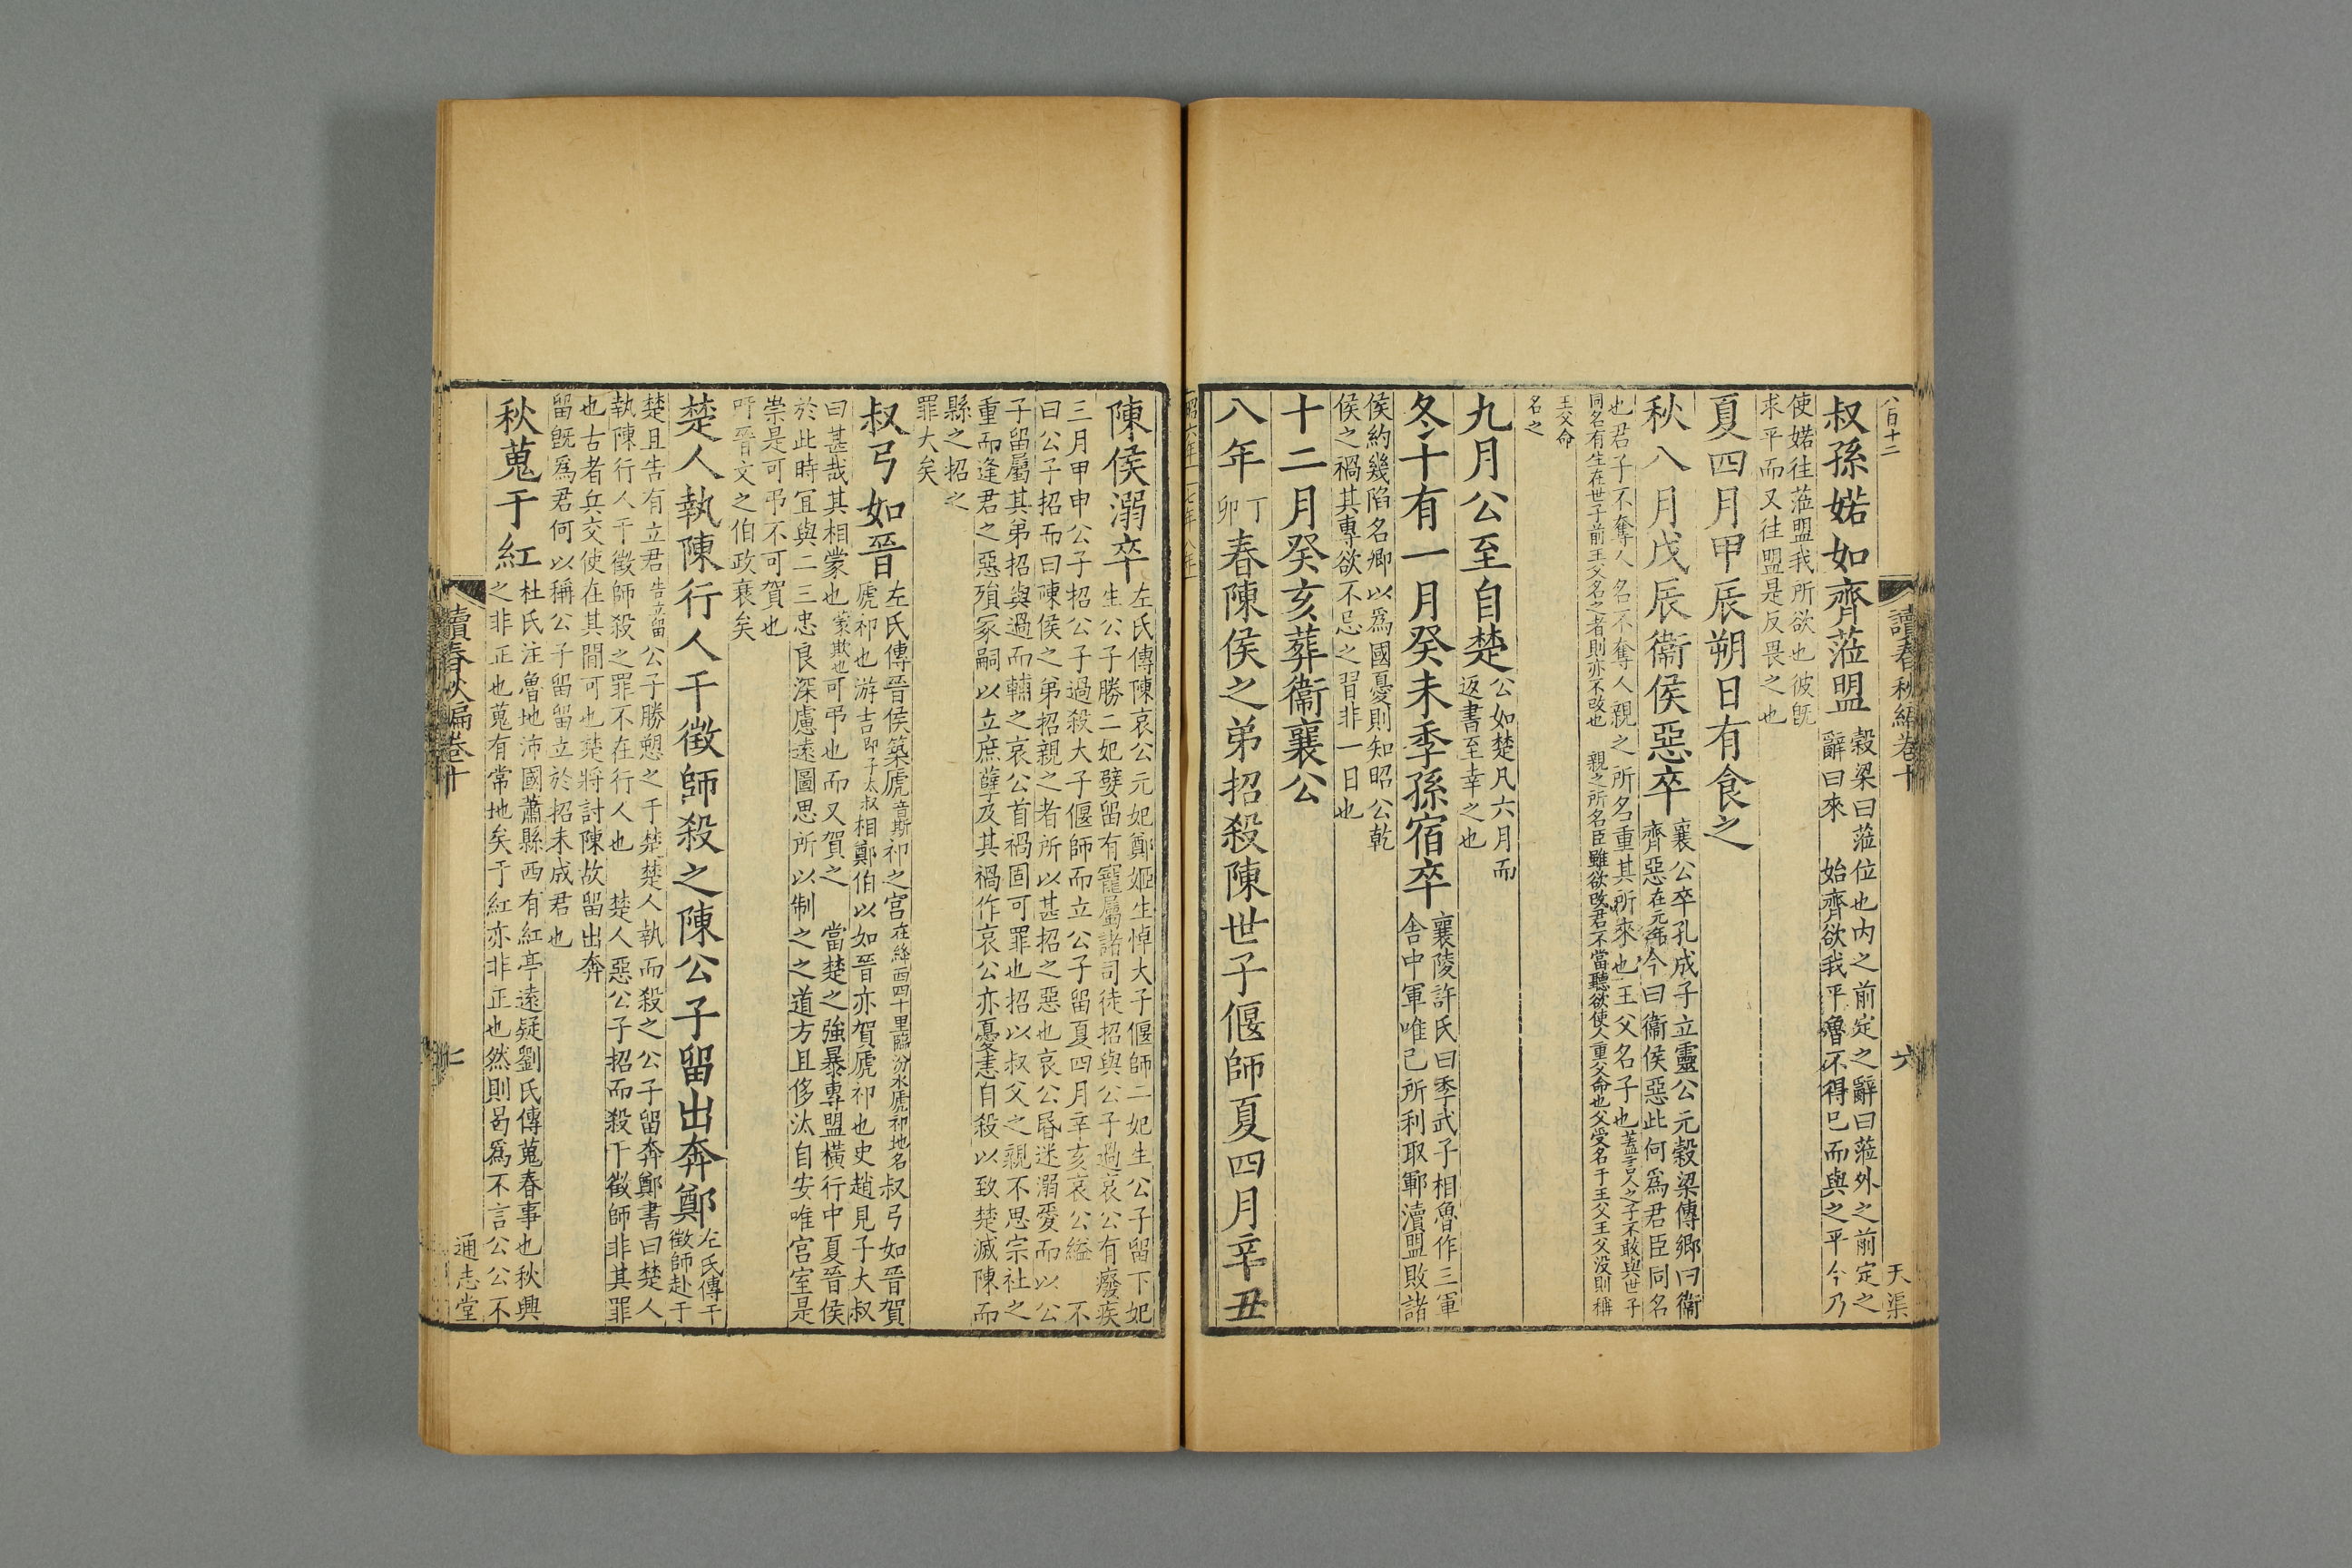 八百十二
讀春秋編卷十
六
天渠
叔孫婼如齊涖盟
穀梁曰涖位也內之前定之辭曰涖外之前定之
辭曰來 始齊欲我平魯不得已而與之平今乃
使婼往涖盟我所欲也彼旣
求平而又往盟是反畏之也
夏四月甲辰朔日有食之
秋八月戊辰衞侯惡卒
襄公卒孔成子立靈公元穀梁傳鄉曰衞
齊惡在元年今曰衞侯惡此何爲君臣同名
也君子不奪人名不奪人親之所名重其所來也王父名子也蓋言人之子不敢與世子
同名有生在世子前王父名之者則亦不改也 親之所名臣雖欲改君不當聽欲使人重父命也父受名于王父王父没則稱
王父命
名之
九月公至自楚
公如楚凡六月而
返書至幸之也
冬十有一月癸未季孫宿卒
襄陵許氏曰季武子相魯作三軍
舍中軍唯已所利取鄆瀆盟敗諸
侯約幾陷名卿以爲國憂則知昭公乾
侯之禍其專欲不忌之習非一日也
十二月癸亥葬衞襄公
八年丁卯春陳侯之弟招殺陳世子偃師夏四月辛丑
昭六年 七年 八年
陳侯溺卒
左氏傳陳哀公元妃鄭姬生悼大子偃師二妃生公子留下妃
生公子勝二妃嬖留有寵屬諸司徒招與公子過哀公有癈疾
三月甲申公子招公子過殺大子偃師而立公子留夏四月辛亥哀公縊 不
曰公子招而曰陳侯之弟招親之者所以甚招之惡也哀公昬迷溺愛而以公
子留屬其弟招與過而輔之哀公首禍固可罪也招以叔父之親不思宗社之
重而逢君之惡殞冢嗣以立庶孽及其禍作哀公亦憂恚自殺以致楚滅陳而
縣之招之
罪大矣
叔弓如晉
左氏傳晉侯築虒音斯祁之宮在絳西四十里臨汾水虒祁地名叔弓如晉賀
虒祁也游吉即子太叔相鄭伯以如晉亦賀虒祁也史趙見子大叔
曰甚哉其相蒙也蒙欺也可弔也而又賀之 當楚之強暴專盟橫行中夏晉侯
於此時宜與二三忠良深慮遠圖思所以制之之道方且侈汰自安唯宮室是
崇是可弔不可賀也
吁晉文之伯政衰矣
楚人執陳行人干徵師殺之陳公子留出奔鄭
左氏傳干
徵師赴于
楚且告有立君告立留公子勝愬之于楚楚人執而殺之公子留奔鄭書曰楚人
執陳行人干徵師殺之罪不在行人也 楚人惡公子招而殺干徵師非其罪
也古者兵交使在其閒可也楚將討陳故留出奔
留旣爲君何以稱公子留留立於招未成君也
秋蒐于紅
杜氏注魯地沛國蕭縣西有紅亭遠疑劉氏傳蒐春事也秋興
之非正也蒐有常地矣于紅亦非正也然則曷爲不言公公不
讀春秋編卷十
通志堂